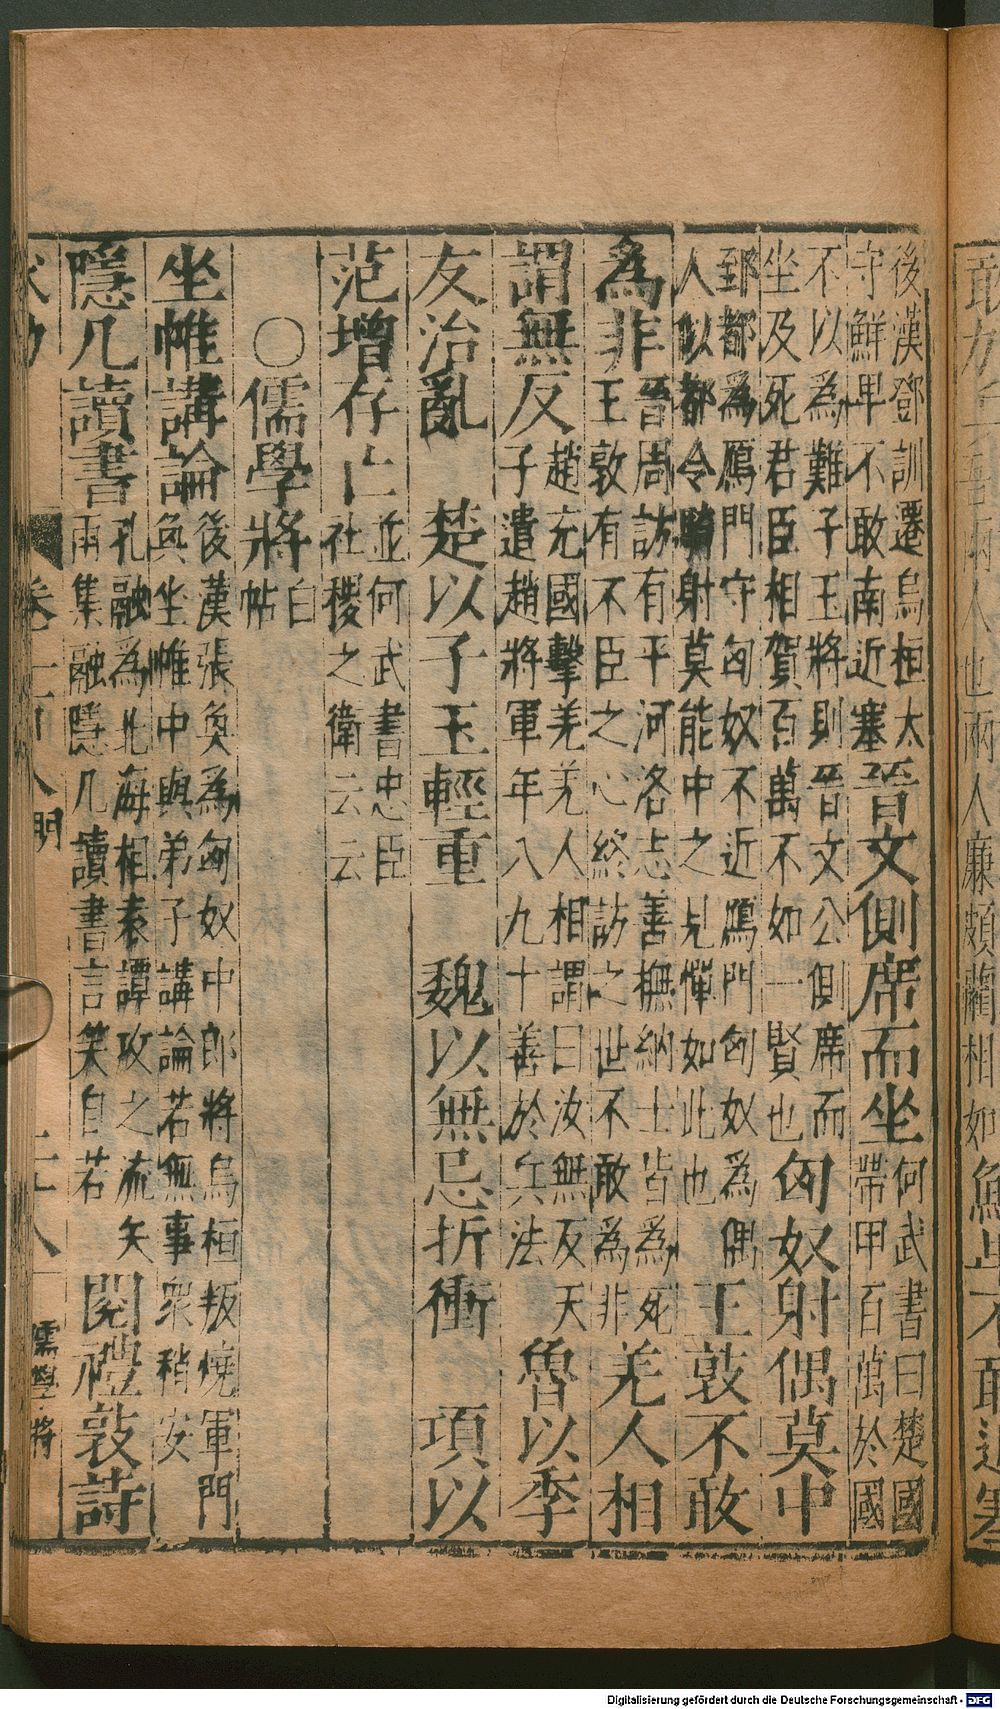 後漢鄧訓遷烏桓太
守鮮卑不敢南近塞
晉文側席而坐
何武書曰楚國
帶甲百萬於國
不以為難子玉將則晉文公側席而
坐及死君臣相賀百萬不如一賢也
匈奴射偶莫中
郅都為鴈門守匈奴不近鴈門匈奴為偶
人似都令騎射莫能中之見憚如此也
王敦不敢
為非
晉周訪有平河洛志善撫納士皆為死
王敦有不臣之心終訪之世不敢為非
羌人相
謂無反
趙充國擊羌羌人相謂曰汝無反天
子遣趙將軍年八九十善於兵法
魯以季
友治亂 楚以子玉輕重 魏以無忌折衝 項以
范增存亡
並何武書忠臣
社稷之衛云云
○儒學將
白
帖
坐帷講論
後漢張奐為匈奴中郎將烏桓叛燒軍門
奐坐帷中與弟子講論若無事衆稍安
隱几讀書
孔融為北海相袁譚攻之流矢
雨集融隱几讀書言笑自若
閱禮敦詩
儒學將
Digitalisierung gefördert durch die Deutsche Forschungsgemeinschaft - DFG